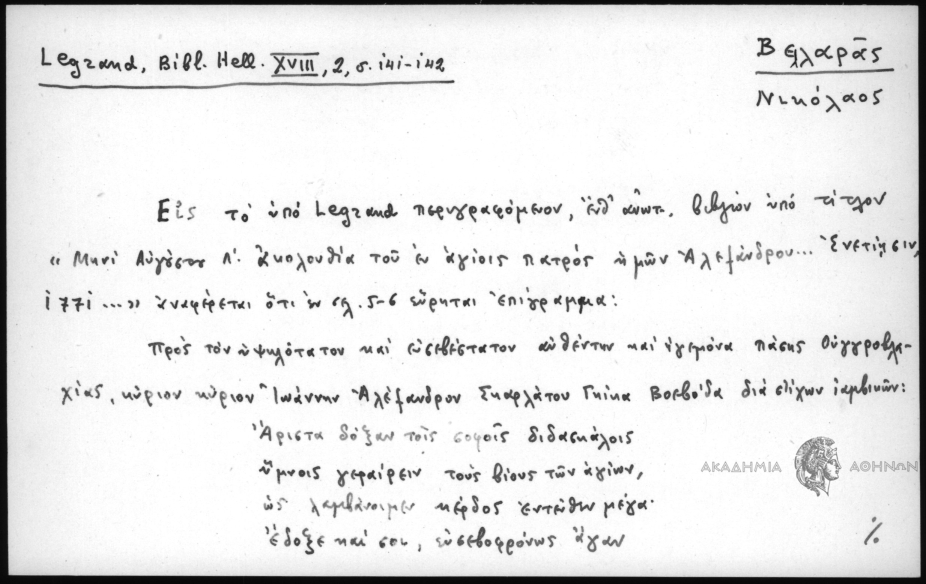 Legrand, Bibl. Hell. XVIII, 2, σ. 141-142
Βελλαρᾶς
Νικόλαος
Εἰς τὸ ὑπὸ Legrand περιγραφόμενον, ἔνθ' ἀνωτ. βιβλίον ὑπὸ τίτλον
« Μηνὶ Αὐγούστου Λ'. Ἀκολουθία τοῦ ἐν ἁγίοις πατρὸς ἡμῶν Ἀλεξάνδρου... Ἐνετίῃσιν,
1771 ... » ἀναφέρεται ὅτι ἐν σελ. 5-6 εὕρηται ἐπίγραμμα:
Πρὸς τὸν ὑψηλότατον καὶ εὐσεβέστατον αὐθέντην καὶ ἡγεμόνα πάσης Οὑγγροβλα-
χίας, κύριον κύριον Ἰωάννην Ἀλέξανδρον Σκαρλάτου Γκίκα Βοεβόδα διὰ στίχων ἰαμβικῶν:
Ἄριστα δόξαν τοῖς σοφοῖς διδασκάλοις
ὕμνοις γεραίρειν τοὺς βίους τῶν ἁγίων,
ὡς λαμβάνοιμεν κέρδος ἐντεῦθεν μέγα·
Ἔδοξε καί σοι, εὐσεβοφρόνως ἄγαν
./.
ΑΚΑΔΗΜΙΑ ΑΘΗΝΩΝ